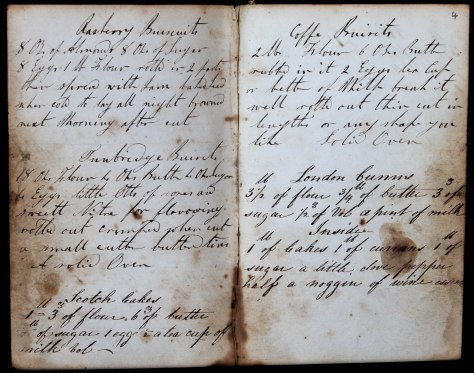 Rasberry Biscuits
8 Ozs of Almonds 8 Ozs of Sugar
8 Eggs 1 lb Flour rolld in 2 parts
then spread with Jam
when cold to lay all night
next Morning after cut
Tunbridge Biscuits
18 Ozs Flour 6 Ozs Butter 6 Ozs Sugar
6 Eggs little Otto of roses and
sweet Nitre for flavoring
rolled out crimped when cut
a small cutter butter tins
A solid Oven
Scotch Cakes
1 lb 3 of flour 6 oz butter
of sugar 1 egg a tea cup of
milk Vol
4
Coffe Buisits
2 lb Flour 6 Ozs Butter
rubbed in it 2 Eggs tea Cup
or betr of Milk break it
well rolld out thin cut in
lengths or any shape you
like Solid Oven
London bunns
3 1/2 of flour 3/4 of butter 3 of
sugar 1/2 of Vol a pint of milk
Inside
1 of Cakes 1 of currans 1 of
sugar a little clove pepper
half a noggen of wine